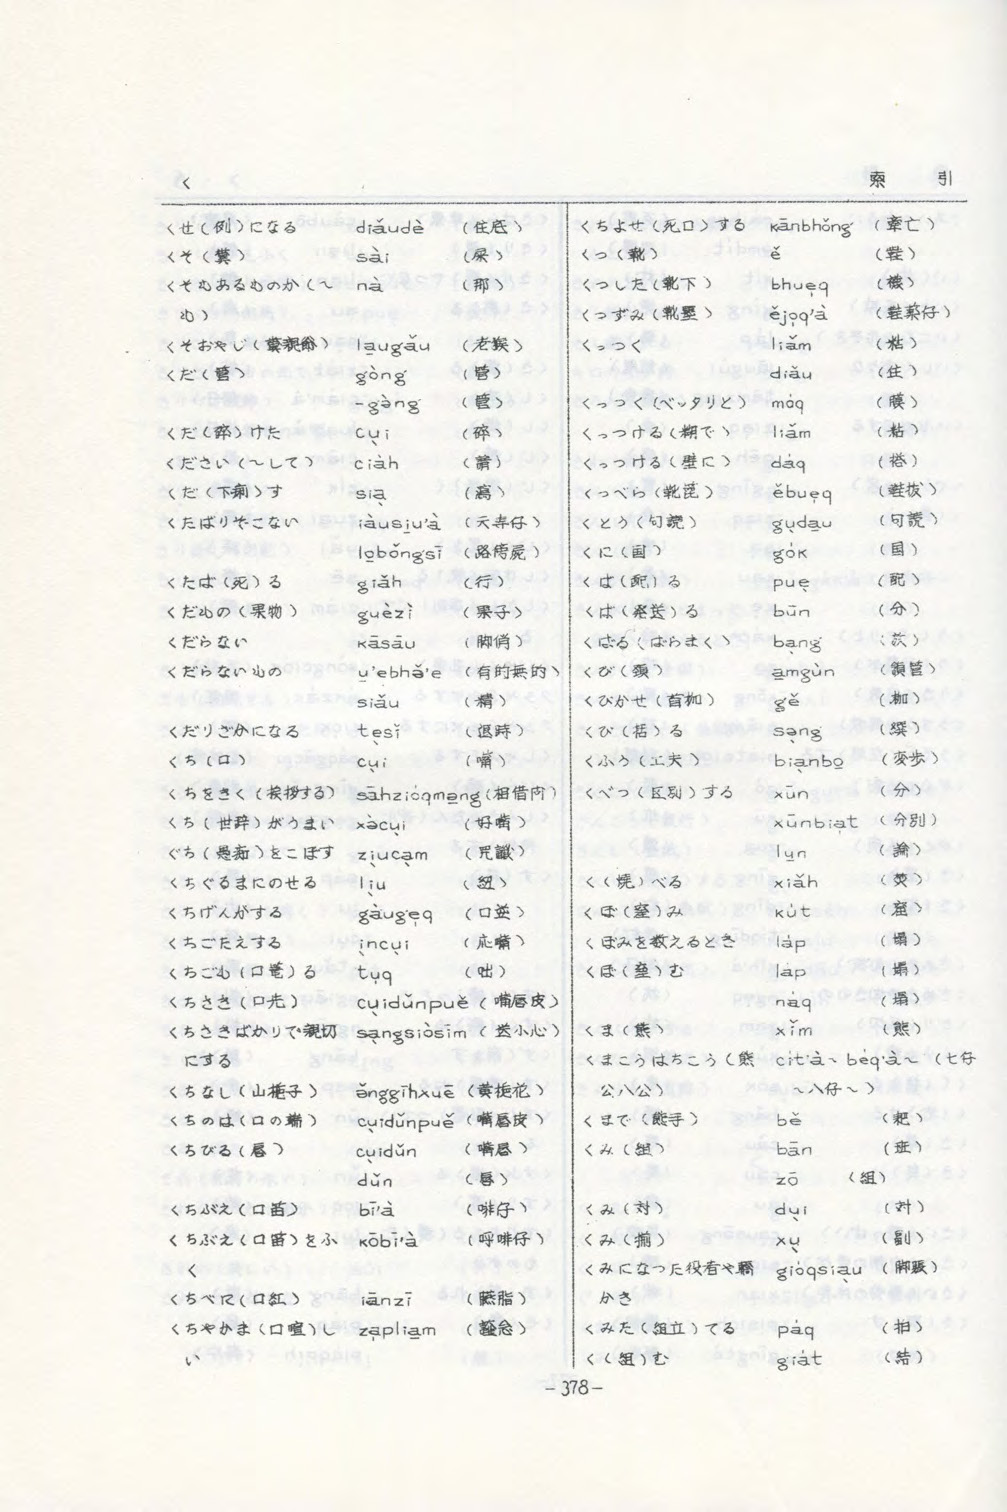 く
索 引
くせ(例)になる diǎudè (住底)
くそ(糞) sài (屎)
くそもあるものか(〜 nà (那)
も)
くそおやじ(糞親爺) la̲ugǎu (老猴)
くだ(管) gòng (管)
-gàng (管)
くだ(砕)けた cu̩i (碎)
ください(〜して) ciàh (請)
くだ(下痢)す sia̩ (瀉)
くたばりそこない iàusi̲u'à (夭寿仔)
lo̲bǒngsī (路傍屍)
くたば(死)る giǎh (行)
くだもの(果物) guèzì (果子)
くだらない kāsāu (脚俏)
くだらないもの u̲'ebhǎ'e (有的無的)
siǎu (精)
くだりざかになる te̩sǐ (退時)
くち(口) cu̩i (嘴)
くちをきく(挨拶する) sāhzióqma̲ng (相借問)
くち(世辞)がうまい xòcu̩i (好嘴)
ぐち(愚痴)をこぼす zi̩uca̲m (咒讖)
くちぐるまにのせる li̩u (紐)
くちげんかする gàug'e̩q (口逆)
くちごたえする i̩ncu̩i (応嘴)
くちごも(口篭)る tu̩q (咄)
くちさき(口先) cu̩idǔnpuě (嘴唇皮)
くちさきばかりで親切 sa̩ngsiòsim (送小心)
にする
くちなし(山梔子) ǒnggīhxuē (黄梔花)
くちのは(口の端) cu̩idǔnpuě (嘴唇皮)
くちびる(唇) cu̩idǔn (嘴唇)
dǔn (唇)
くちぶえ(口笛) bī'à (嗶仔)
くちぶえ(口笛)をふ kōbī'à (呼嗶仔)
く
くちべに(口紅) iānzī (臙脂)
くちやかま(口喧)し za̩plia̲m (雑念)
い
くちよせ(死口)する kānbhǒng (牽亡)
くつ(靴) ě (鞋)
くつした(靴下) bhue̩q (襪)
くつずみ(靴墨) ějo̩q'à (鞋薬仔)
くっつく liǎm (粘)
diǎu (住)
くっつく(ベッタリと) móq (膜)
くっつける(糊で) liǎm (粘)
くっつける(壁に) dáq (搭)
くつべら(靴箆) ěbue̩q (鞋拔)
くとう(句読) gu̩da̲u (句読)
くに(国) gók (国)
くば(配)る pue̩ (配)
くば(発送)る būn (分)
くばる(ばらまく)
くび(頸) a̲mgùn (頷管)
くびかせ(首枷) gě (枷)
くび(括)る
くふう(工夫) bi̩anbo̲ (変歩)
くべつ(区別)する xūn (分)
xūnbi̩at (分別)
lu̲n (論)
く(焼)べる xiǎh (焚)
くぼ(窪)み kút (窟)
くぼみを数えるとき láp (塌)
くぼ(窪)む láp (塌)
náq (塌)
くま(熊) xǐm (熊)
くまこうはちこう(熊 cit'à〜 béq'à〜 (七仔
公八公) 〜八仔〜)
くまで(熊手) bě (耙)
くみ(組) bān (班)
zō (組)
くみ(対) du̩i (対)
くみ(揃) xu̩ (副)
くみになった役者や轎 gióqsiau (脚賬)
かき
くみた(組立)てる páq (拍)
くく(組)む giát (結)
-378-